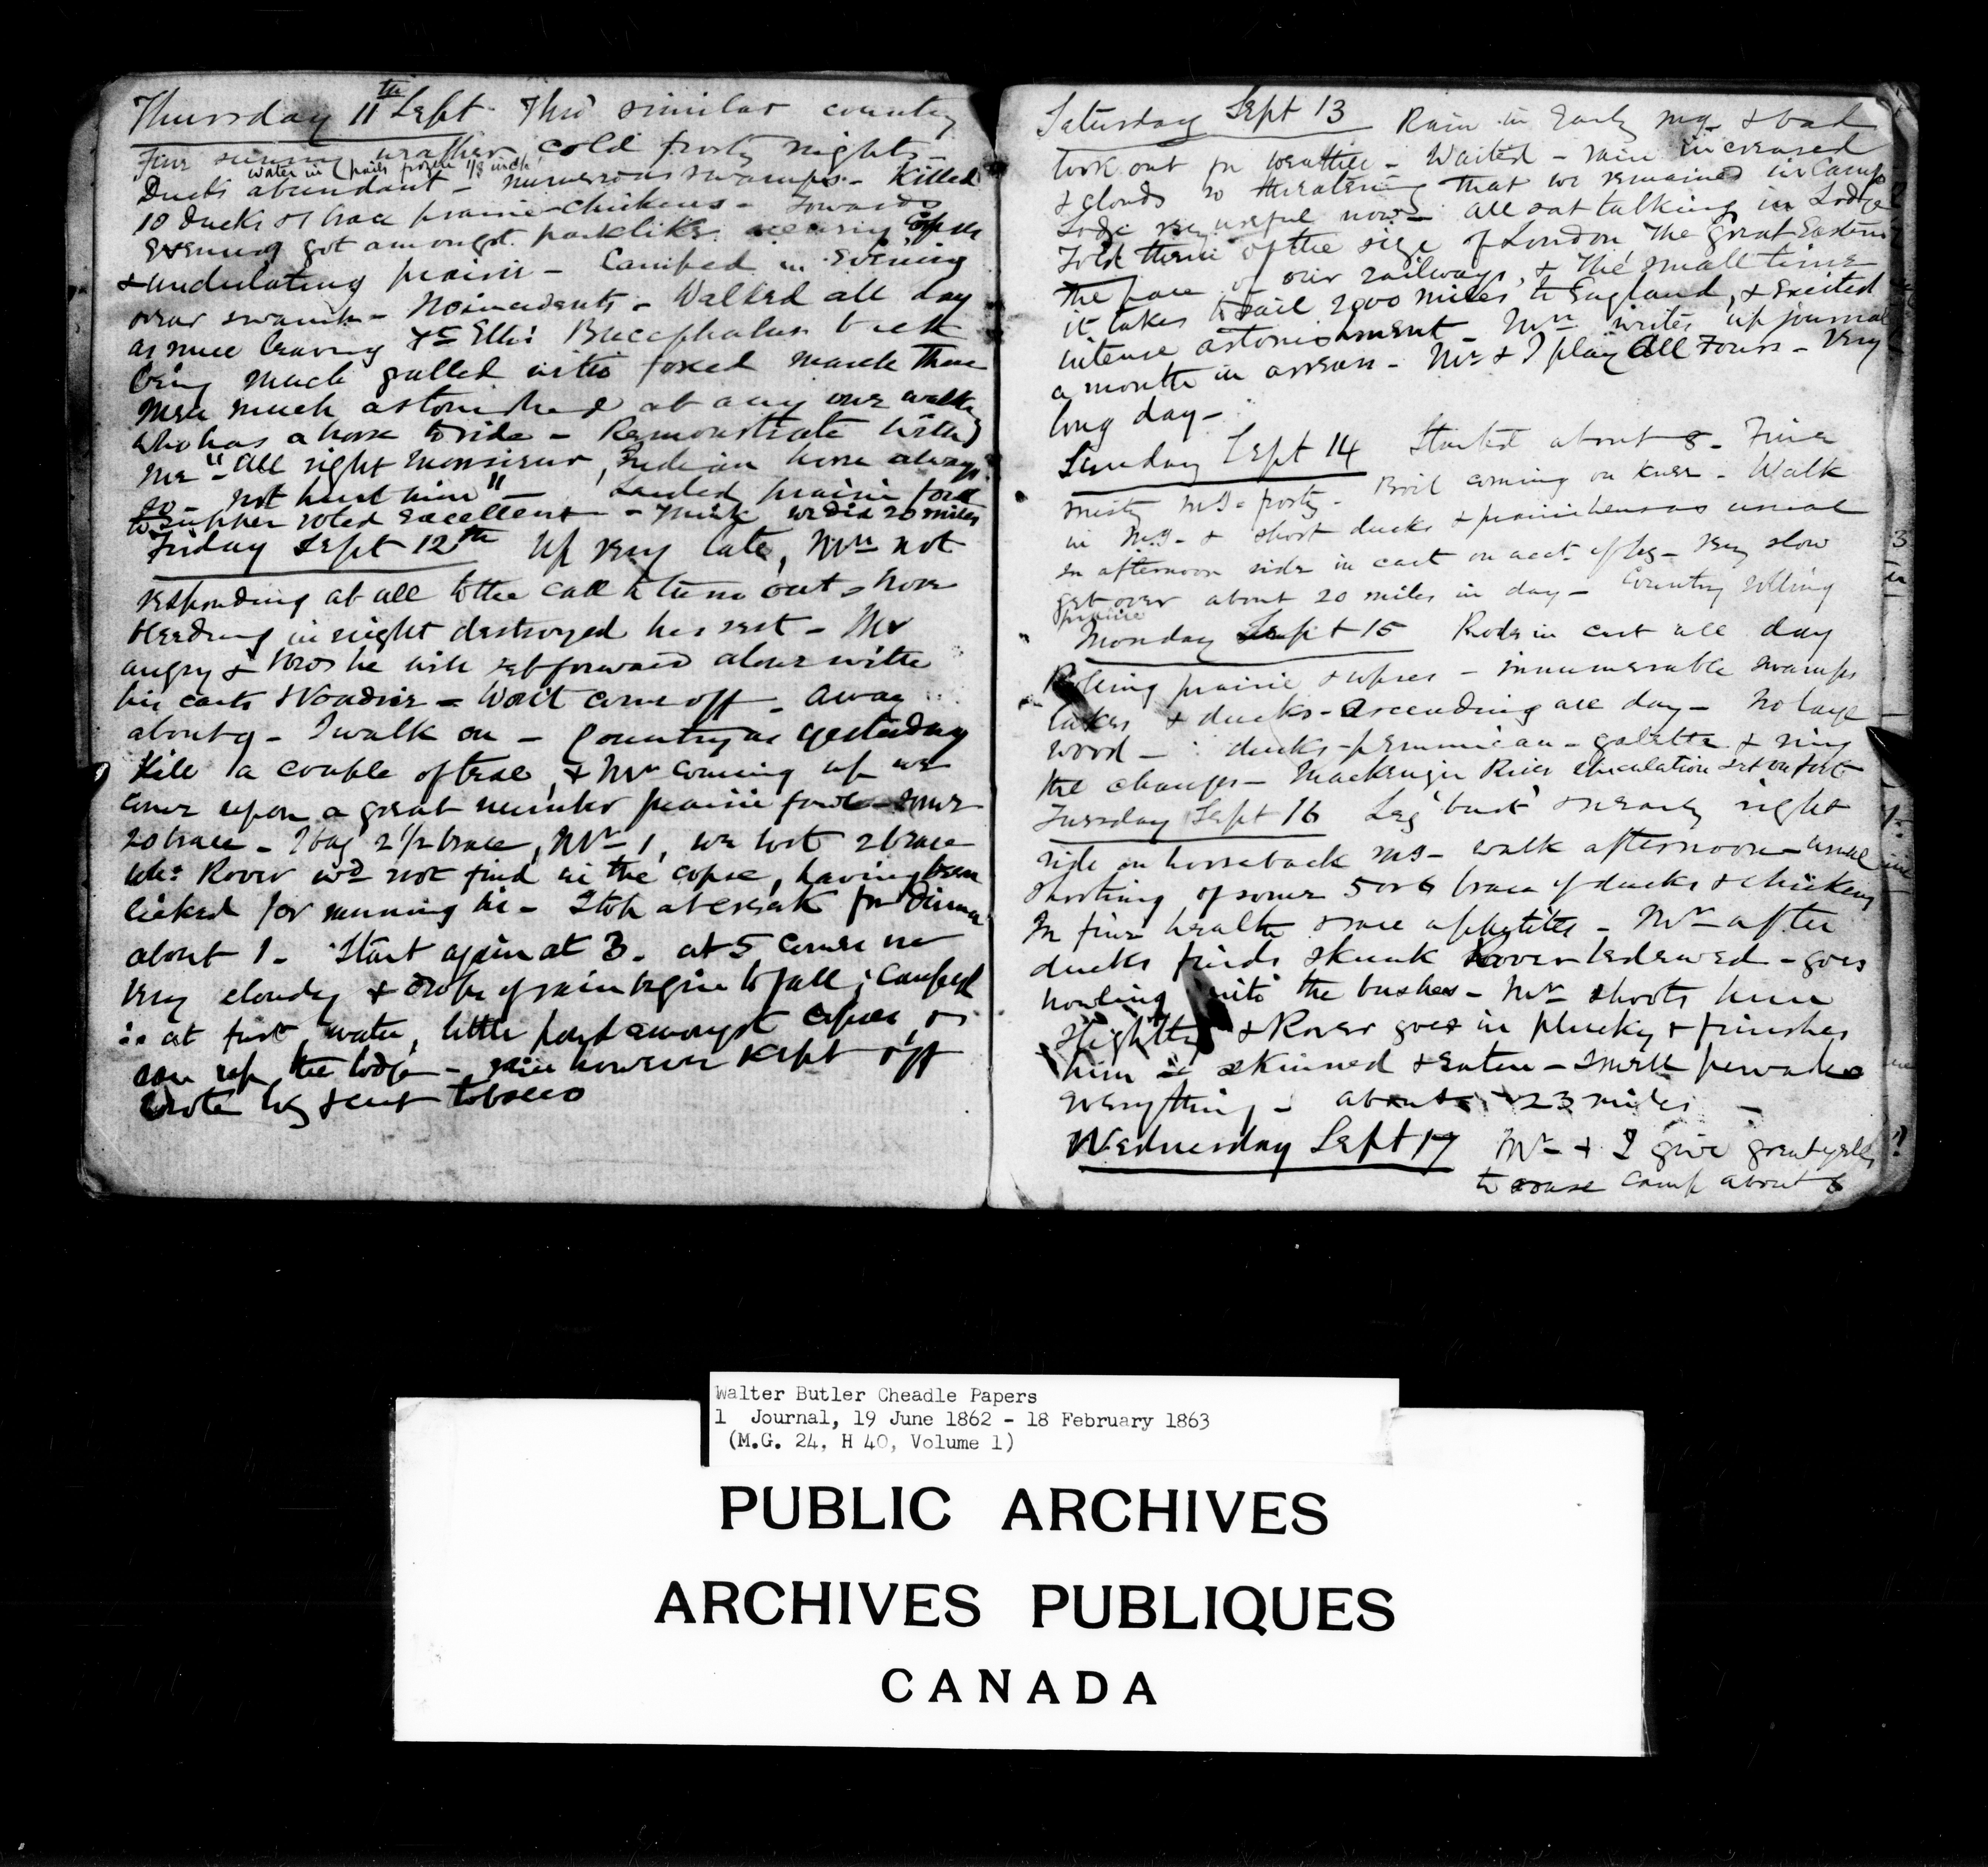 Thursday 11th Sept. Thro' similar country
Fine sunny weather, cold frosty nights.
water in pails frozen 1/3 inch
Ducks abundant – numerous swamps. Killed
10 ducks & 1 brace prairie-chickens – Towards
Evening got amongst parklike scenery copses
& undulating prairie – Camped in Evening
near swamp – No incidents – Walked all day
as mine Craving Yr Ellis Bucephalus back
being much galled in the forced march
Men much astonished at any one walking
who has a horse to ride – Remonstrate with
me "All right Monsieur, Indian horse always
so – not hurt him" – prairie fowl
to supper voted excellent – think we did 20 miles
Friday Sept 12th Up very late, Mn not
responding at all to the call to turn out, nose
bleeding in night destroyed his rest – Mr
angry & vows he will set forward alone with
his carts & Voudrie – Won't come off. Away
about 9 – I walk on – Country as yesterday
Kill a couple of teal, & Mn coming up we
come upon a great number prairie fowl – some
20 brace – I bag 2 1/2 brace, Mn 1, we lost 2 brace
whh Rover wd not find in the copse, having been
licked for running in – Stop at creek for Dinner
about 1 – Start again at 3. at 5 comes on
very cloudy & drops of rain begin to fall; camped
at first water, little pond amongst copses, &
ran up the lodge – rain however kept off
Wrote log & cut tobacco
Saturday Sept 13 Rain in Early mg & bad
look out for weather – Waited – rain increased
& clouds so threatening that we remained in Camp
Lodge very useful now – all sat talking in Lodge
Told them of the size of London, The Great Eastern
the pace of our railways, & the small time
it takes to sail 2000 miles to England, & excited
intense astonishment – Mn writes up journal
a month in arrears – Mr & I play All Fours – Very
long day –
Sunday Sept 14 Started about 8 – Fine
misty mg – frosty – Boil coming on knee – Walk
in mg – & shoot ducks & prairie hens as usual
In afternoon ride in cart on acct of leg – very slow
get over about 20 miles in day – Country rolling
prairie
Monday Sept 15 Rode in cart all day
Rolling prairie & copses – innumerable swamps
lakes & ducks – ascending all day – No large
wood – ducks – pemmican – galette & ring
the changes – Mackenzie River speculation set on foot
Tuesday Sept 16 Leg 'bust' & nearly right
ride on horseback mg – walk afternoon – usual
shooting of some 5 or 6 brace of ducks & chickens
In fine health & rare appetites – Mn after
ducks finds skunk Rover bedewed – goes
howling into the bushes – Mn shoots him
slightly & Rover goes in plucky & finishes
him – skinned & eaten – smell pervades
everything – about 23 miles –
Wednesday Sept 17 Mn & I give great yells
to rouse camp about 6
Walter Butler Cheadle Papers
1 Journal, 19 June 1862 - 18 February 1863
(M.G. 24, H 40, Volume 1)
PUBLIC ARCHIVES
ARCHIVES PUBLIQUES
CANADA